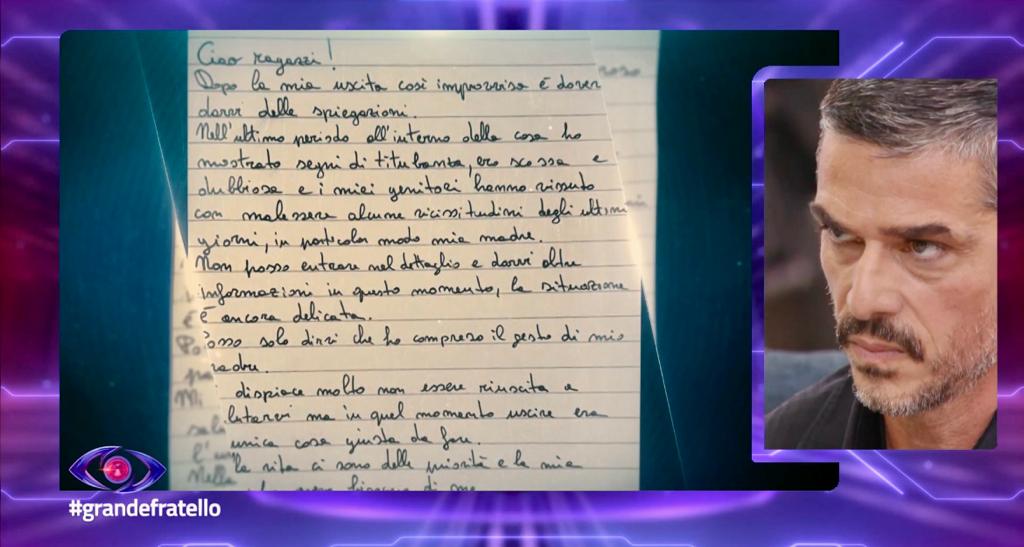 Ciao ragazzi!
Dopo la mia uscita così improvvisa è dover
darvi delle spiegazioni.
Nell'ultimo periodo all'interno della casa ho
mostrato segni di titubanza, ero scossa e
dubbiosa e i miei genitori hanno vissuto
con malessere alcune vicissitudini degli ultimi
giorni, in particolar modo mia madre.
Non posso entrare nel dettaglio e darvi altre
informazioni in questo momento, la situazione
è ancora delicata.
osso solo dirvi che ho compreso il gesto di mio
padre.
dispiace molto non essere riuscita a
lutarvi ma in quel momento uscire era
unica cosa giusta da fare.
Nella vita ci sono delle priorità e la mia
di me
#grandefratello